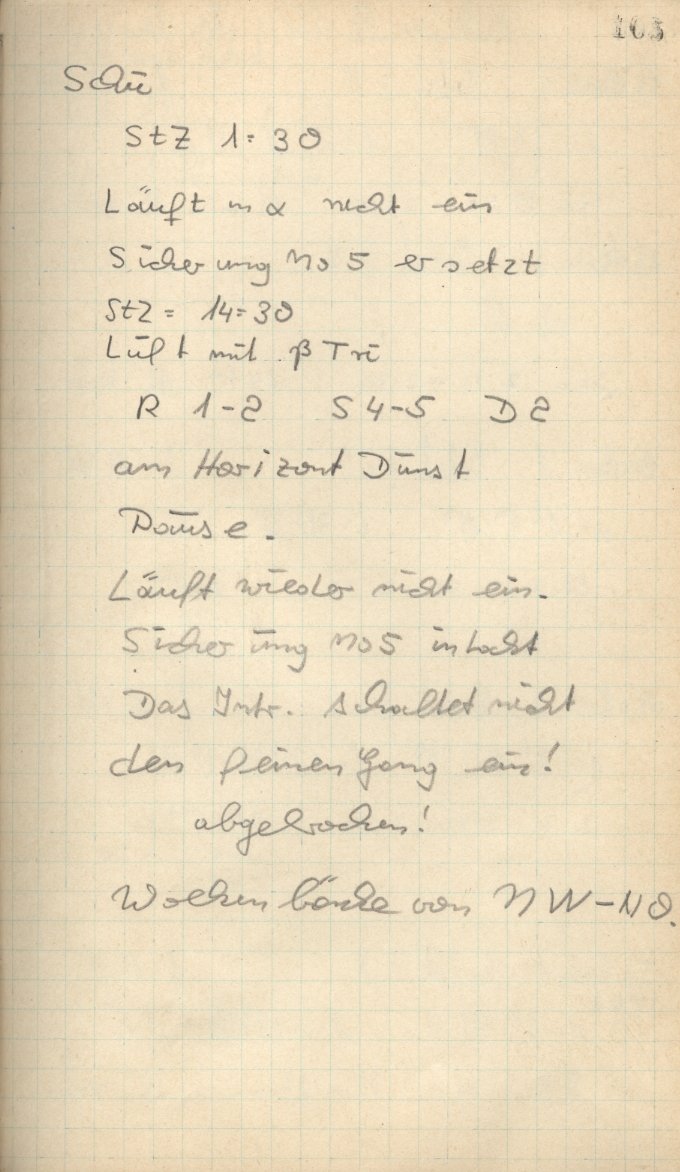 103
Schü
StZ 1=30
Läuft in α nicht ein
Sicherung No 5 ersetzt
StZ = 14=30
Luft mit β Tri
R 1-2 S 4-5 D 2
am Horizont Dunst
Pause.
Läuft wieder nicht ein.
Sicherung No 5 intakt
Das Instr. schaltet nicht
den feinen Gang ein!
abgebrochen!
Wolkenbänke von NW-NO.